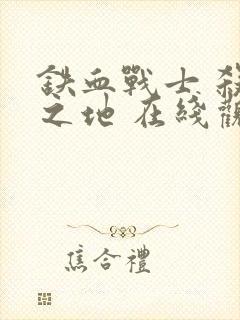 鉄血戰士 殺
之地 在綫觀
焦合禮